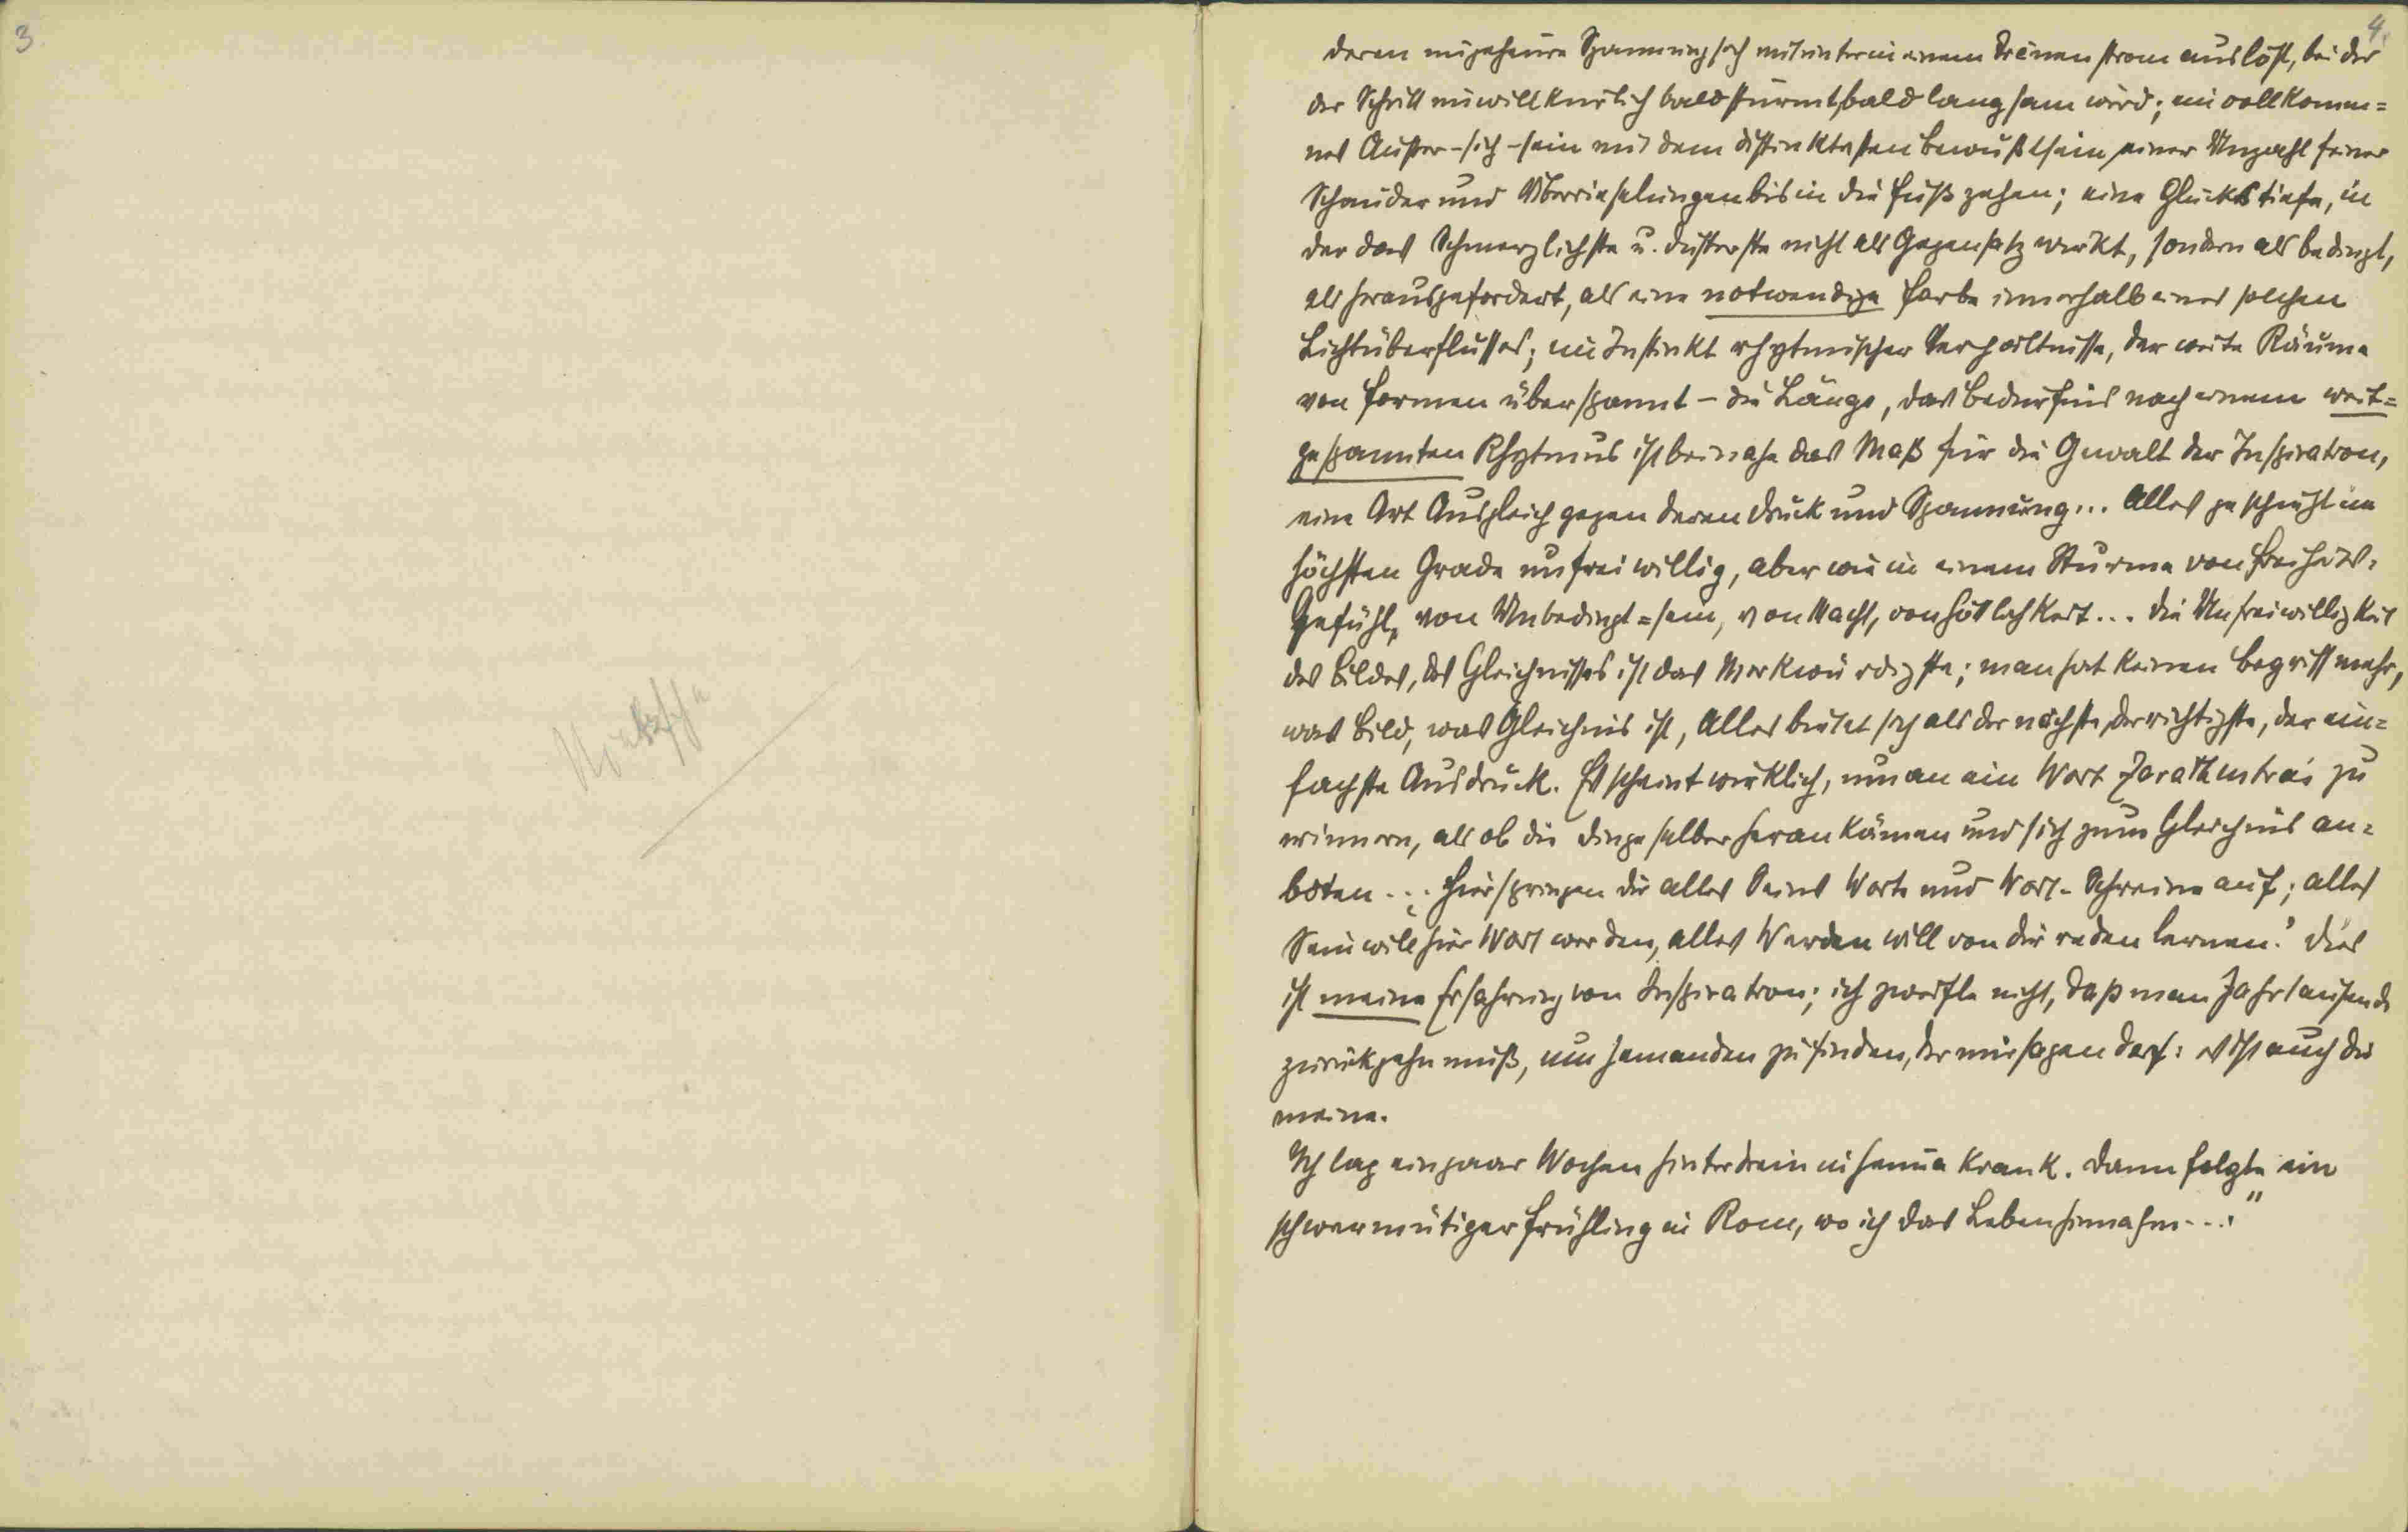 3.
Nietzsche
4.
deren ungeheure Spannung sich mitunter in einem Trenenstrom auslöst, bei der
der Schritt unwillkürlich bald stürmt, bald langsam wird; ein vollkomm=
nes Ausser-sich-sein mit dem distinktesten Bewußtsein einer Unzahl feiner
Schauder und Überrieselungen bis in die Fußzehen; eine Glückstiefe, in
der das Schmerzlichste u. Düsterste nicht als Gegensatz wirkt, sondern als bedingt,
als herausgefordert, als eine notwendige Farbe innerhalb eines solchen
Lichtüberflusses; ein Instinkt rhytmischer Verhältnisse, der weite Räume
von Formen überspannt – die Länge, das Bedürfnis nach einem weit=
gespannten Rhytmus ist beinahe das Maß für die Gewalt der Inspiration,
eine Art Ausgleich gegen deren Druck und Spannung... Alles geschieht im
höchsten Grade unfreiwillig, aber wie in einem Sturme von Freiheits-
Gefühl, von Unbedingt=sein, von Macht, von Göttlichkeit... Die Unfreiwilligkeit
des Bildes, des Gleichnisses ist das Merkwürdigste; man hat keinen Begriff mehr,
was Bild, was Gleichnis ist, Alles bietet sich als der nächste, der richtigste, der ein=
fachste Ausdruck. Es scheint wirklich, um an ein Wort Zarathustra's zu
erinnern, als ob die Dinge selber herankämen und sich zum Gleichnis an=
böten... Hier springen dir alles Seins Worte und Wort-Schreine auf; alles
Sein will hier Wort werden, alles Werden will von dir reden lernen.' Dies
ist meine Erfahrung von Inspiration; ich zweifle nicht, daß man Jahrtausende
zurückgehn muß, um jemanden zu finden, der mir sagen darf: es ist auch die
meine.
Ich lag ein paar Wochen hinterdrein in Genua krank. Dann folgte ein
schwermütiger Frühling in Rom, wo ich das Leben hinnahm...."